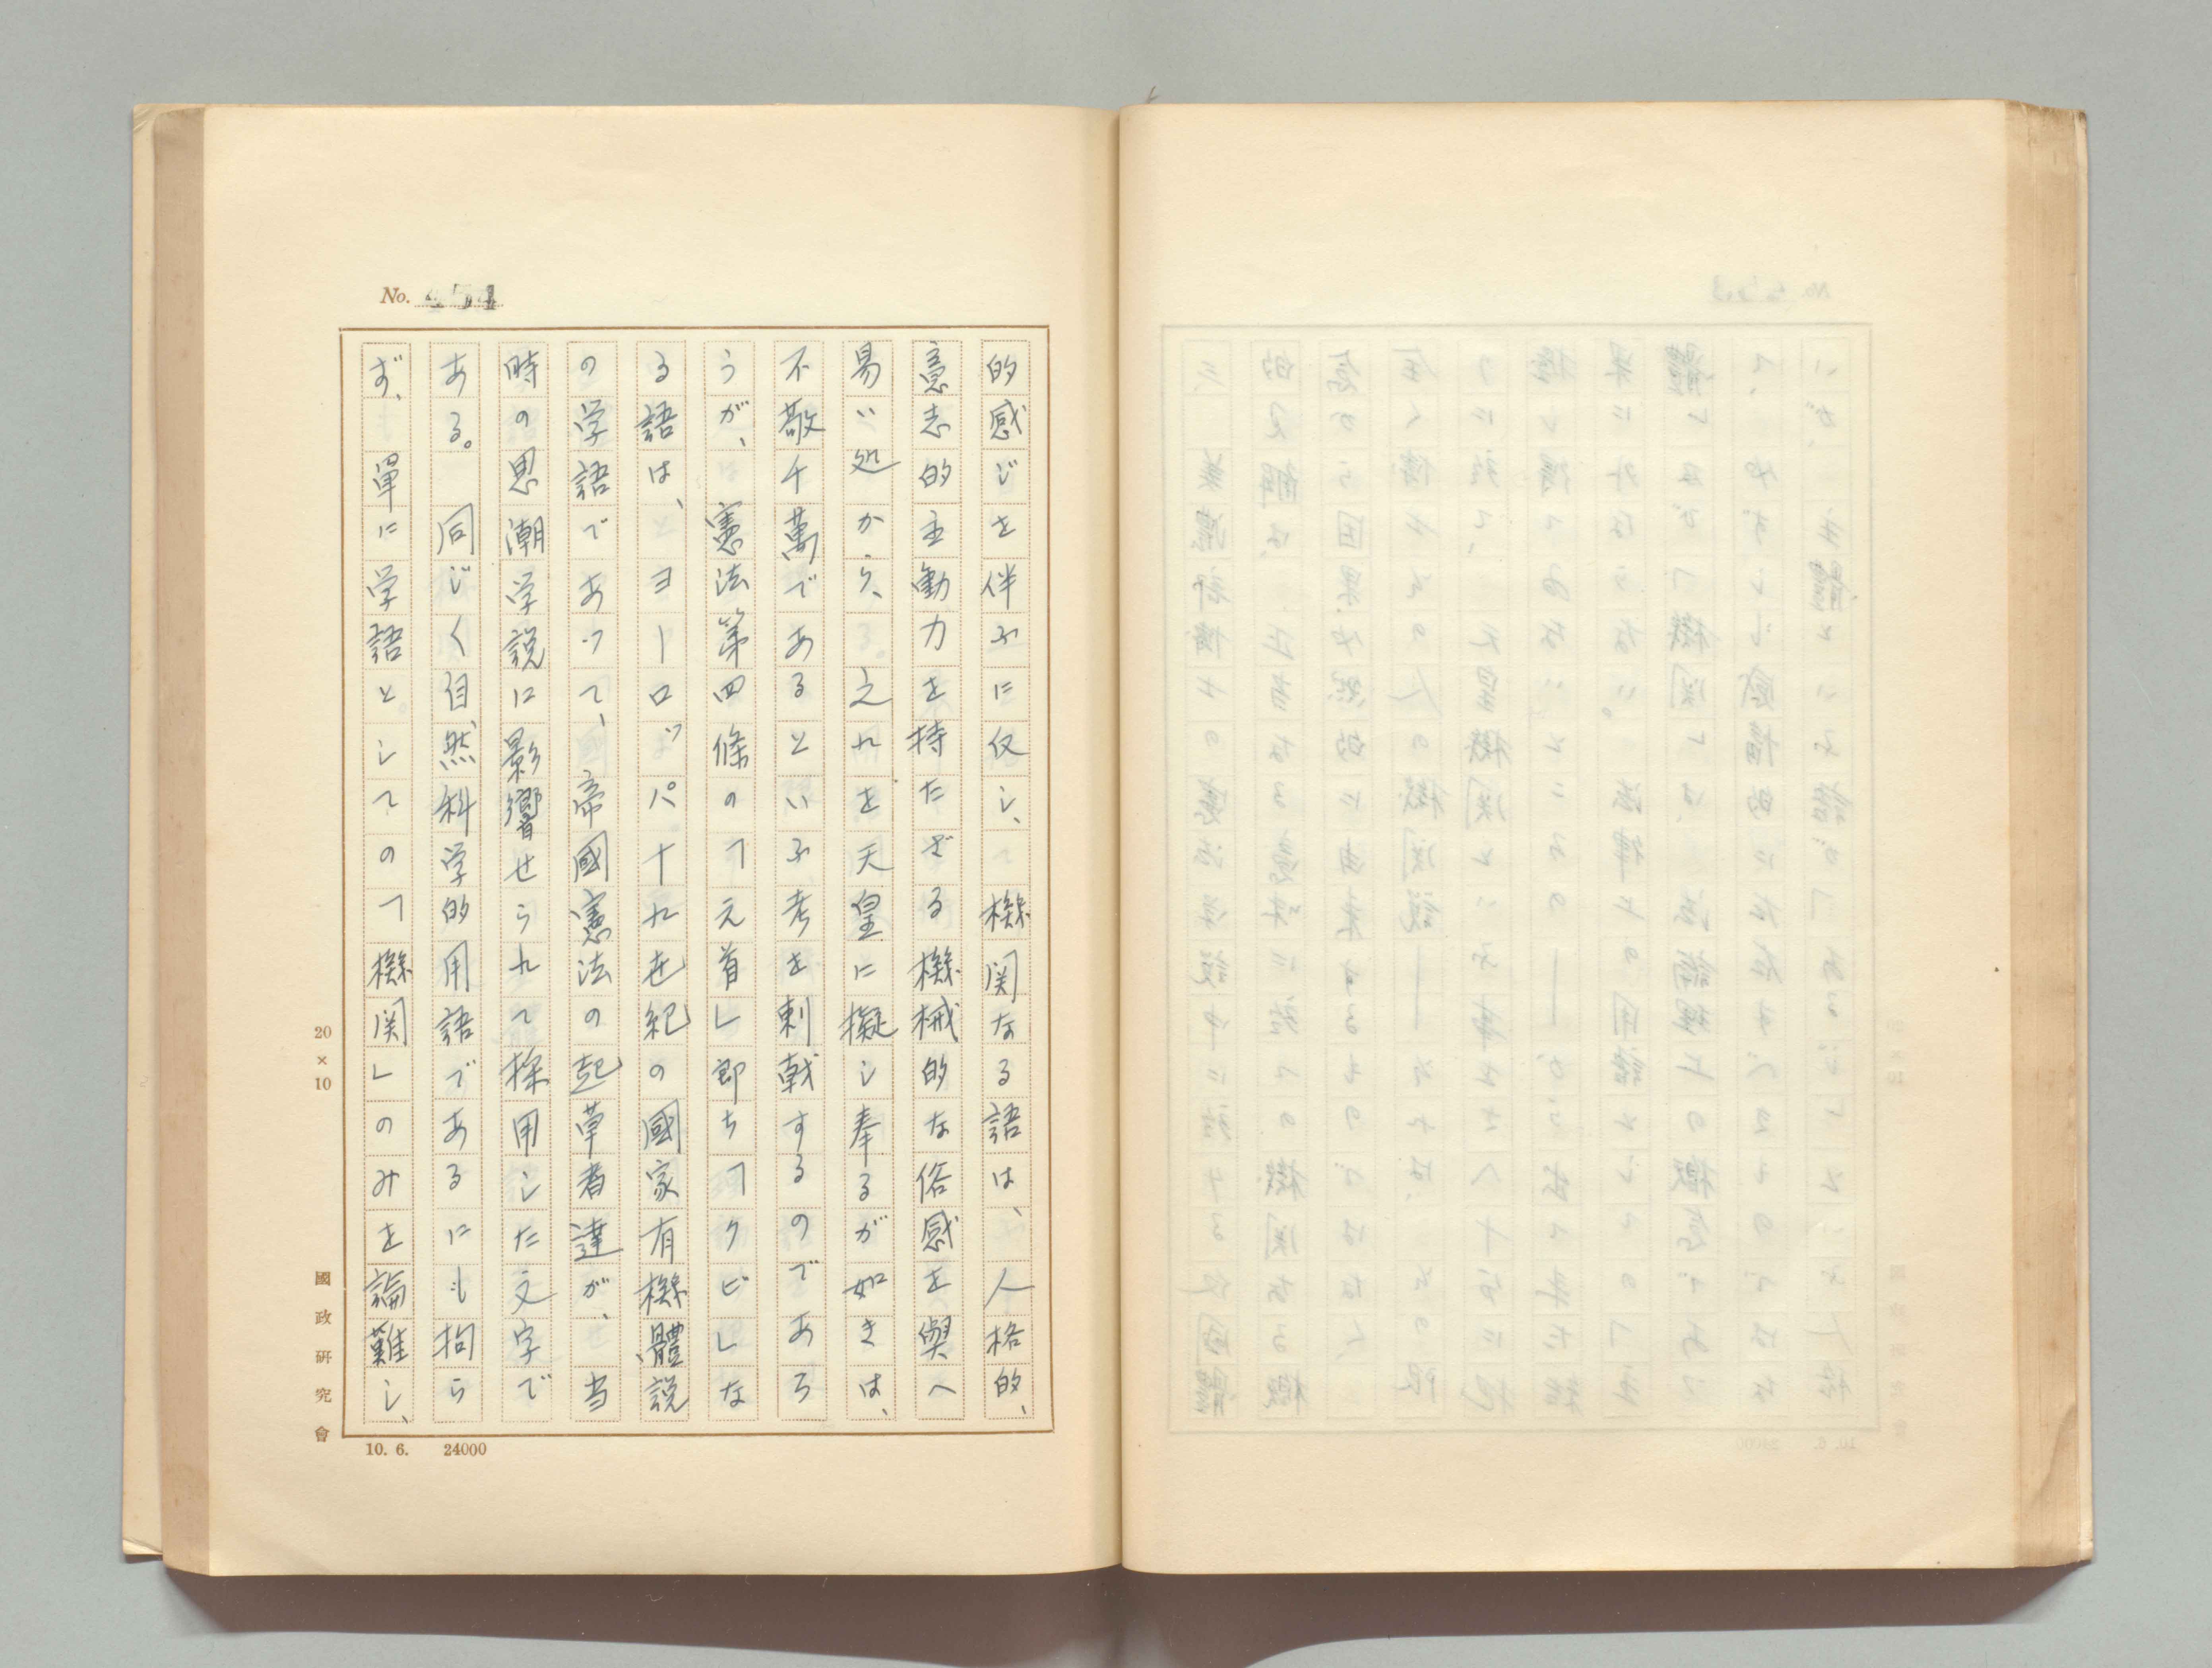 No. 454
的感じを伴ふに反し、機関なる語は、人格的、
意志的主動力を持たざる機械的な俗感を與へ
易い処から、之れを天皇に擬し奉るが如きは、
不敬千萬であるといふ考を刺戟するのであら
うが、憲法第四條の「元首」即ち「クビ」な
る語は、ヨーロッパ十九世紀の國家有機體説
の学語であって、帝國憲法の起草者達が、当
時の思潮学説に影響せられて採用した文字で
ある。同じく自然科学的用語であるにも拘ら
ず、單に学語としての「機関」のみを論難し、
20×10
國政研究會
10. 6. 24000